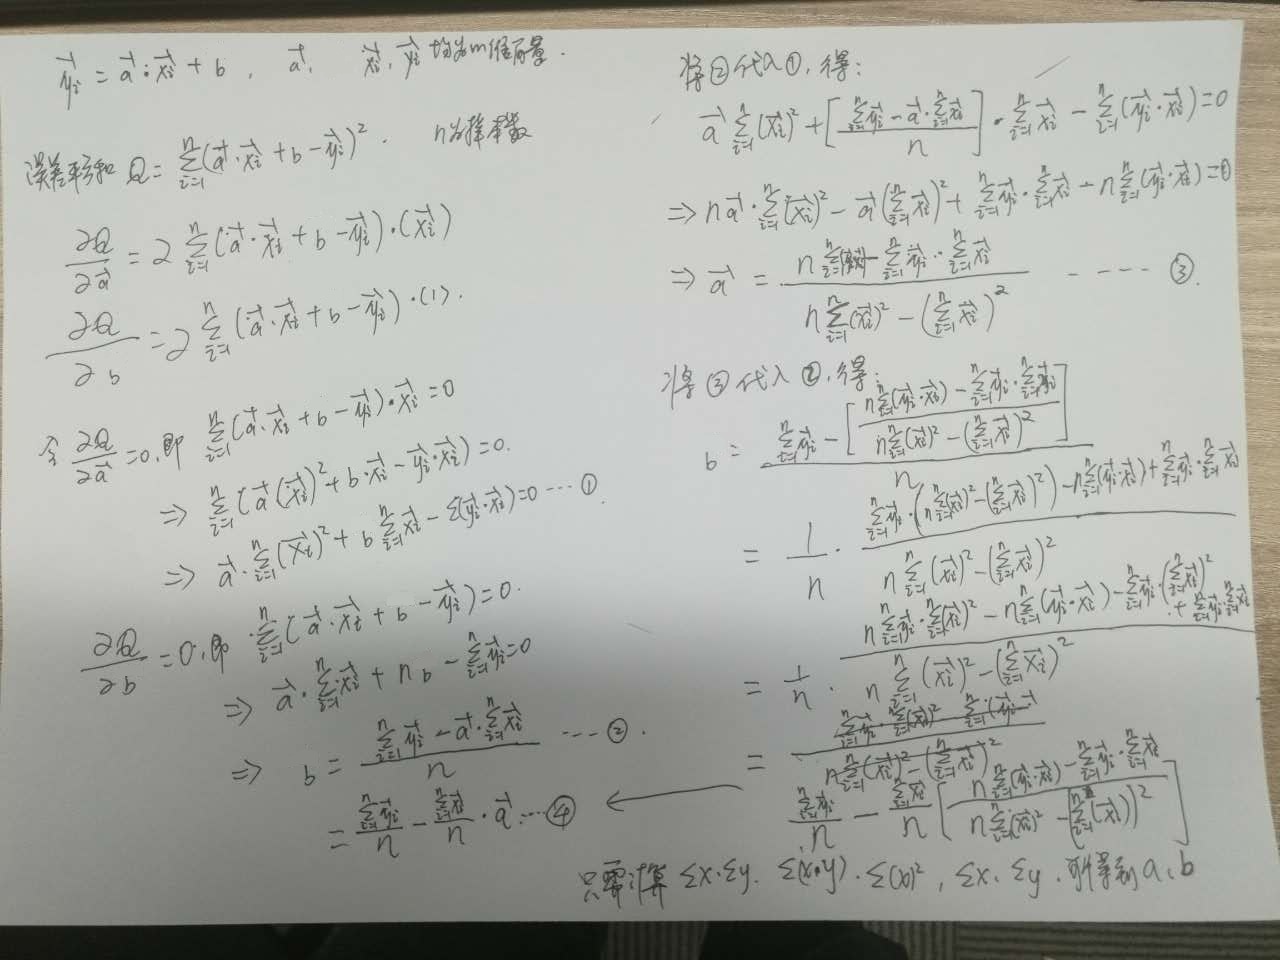 $\vec{y_i} = \vec{a} \cdot \vec{x_i} + b$ , $\vec{a}$, $\vec{x_i}$, $\vec{y_i}$ 均为m维向量.
误差平方和 $Q = \sum_{i=1}^{n} (\vec{a} \cdot \vec{x_i} + b - \vec{y_i})^2$. n为样本数
$\frac{\partial Q}{\partial \vec{a}} = 2 \sum_{i=1}^{n} (\vec{a} \cdot \vec{x_i} + b - \vec{y_i}) \cdot (\vec{x_i})$
$\frac{\partial Q}{\partial b} = 2 \sum_{i=1}^{n} (\vec{a} \cdot \vec{x_i} + b - \vec{y_i}) \cdot (1)$.
令 $\frac{\partial Q}{\partial \vec{a}} = 0$, 即 $\sum_{i=1}^{n} (\vec{a} \cdot \vec{x_i} + b - \vec{y_i}) \cdot \vec{x_i} = 0$
$\Rightarrow \sum_{i=1}^{n} (\vec{a} (\vec{x_i})^2 + b \cdot \vec{x_i} - \vec{y_i} \cdot \vec{x_i}) = 0$.
$\Rightarrow \vec{a} \cdot \sum_{i=1}^{n} (\vec{x_i})^2 + b \sum_{i=1}^{n} \vec{x_i} - \Sigma (\vec{y_i} \cdot \vec{x_i}) = 0$ --- ①
$\frac{\partial Q}{\partial b} = 0$, 即 $\sum_{i=1}^{n} (\vec{a} \cdot \vec{x_i} + b - \vec{y_i}) = 0$.
$\Rightarrow \vec{a} \cdot \sum_{i=1}^{n} \vec{x_i} + nb - \sum_{i=1}^{n} \vec{y_i} = 0$
$\Rightarrow b = \frac{\sum_{i=1}^{n} \vec{y_i} - \vec{a} \cdot \sum_{i=1}^{n} \vec{x_i}}{n}$ --- ②.
$= \frac{\sum_{i=1}^{n} \vec{y_i}}{n} - \frac{\sum_{i=1}^{n} \vec{x_i}}{n} \cdot \vec{a}$ --- ④
将②代入①, 得:
$\vec{a} \sum_{i=1}^{n} (\vec{x_i})^2 + \left[ \frac{\sum_{i=1}^{n} \vec{y_i} - \vec{a} \cdot \sum_{i=1}^{n} \vec{x_i}}{n} \right] \cdot \sum_{i=1}^{n} \vec{x_i} - \sum_{i=1}^{n} (\vec{y_i} \cdot \vec{x_i}) = 0$
$\Rightarrow n\vec{a} \cdot \sum_{i=1}^{n} (\vec{x_i})^2 - \vec{a} (\sum_{i=1}^{n} \vec{x_i})^2 + \sum_{i=1}^{n} \vec{y_i} \cdot \sum_{i=1}^{n} \vec{x_i} - n \sum_{i=1}^{n} (\vec{y_i} \cdot \vec{x_i}) = 0$
$\Rightarrow \vec{a} = \frac{n \sum_{i=1}^{n} - \sum_{i=1}^{n} \vec{y_i} \cdot \sum_{i=1}^{n} \vec{x_i}}{n \sum_{i=1}^{n} (\vec{x_i})^2 - (\sum_{i=1}^{n} \vec{x_i})^2}$ ----- ③.
将③代入②, 得:
$b = \frac{\sum_{i=1}^{n} \vec{y_i} - \left[ \frac{n \sum_{i=1}^{n} (\vec{y_i} \cdot \vec{x_i}) - \sum_{i=1}^{n} \vec{y_i} \cdot \sum_{i=1}^{n}}{n \sum_{i=1}^{n} (\vec{x_i})^2 - (\sum_{i=1}^{n} \vec{x_i})^2} \right]}{n}$
$= \frac{1}{n} \cdot \frac{\sum_{i=1}^{n} \vec{y_i} \cdot (n \sum_{i=1}^{n} (\vec{x_i})^2 - (\sum_{i=1}^{n} \vec{x_i})^2) - n \sum_{i=1}^{n} (\vec{y_i} \cdot \vec{x_i}) + \sum_{i=1}^{n} \vec{y_i} \cdot \sum_{i=1}^{n} \vec{x_i}}{n \sum_{i=1}^{n} (\vec{x_i})^2 - (\sum_{i=1}^{n} \vec{x_i})^2}$
$= \frac{1}{n} \cdot \frac{n \sum_{i=1}^{n} \vec{y_i} \cdot \sum_{i=1}^{n} (\vec{x_i})^2 - n \sum_{i=1}^{n} (\vec{y_i} \cdot \vec{x_i}) - \sum_{i=1}^{n} \vec{y_i} \cdot (\sum_{i=1}^{n} \vec{x_i})^2 + \sum_{i=1}^{n} \vec{y_i} \cdot \sum_{i=1}^{n} \vec{x_i}}{n \sum_{i=1}^{n} (\vec{x_i})^2 - (\sum_{i=1}^{n} \vec{x_i})^2}$
$=$
$\frac{\sum_{i=1}^{n} \vec{y_i}}{n} - \frac{\sum_{i=1}^{n} \vec{x_i}}{n} \left[ \frac{n \sum_{i=1}^{n} (\vec{y_i} \cdot \vec{x_i}) - \sum_{i=1}^{n} \vec{y_i} \cdot \sum_{i=1}^{n} \vec{x_i}}{n \sum_{i=1}^{n} (\vec{x_i})^2 - (\sum_{i=1}^{n} (\vec{x_i}))^2} \right]$
只需计算 Σx·Σy, Σ(x·y), Σ(x)², Σx, Σy, 可得到a, b